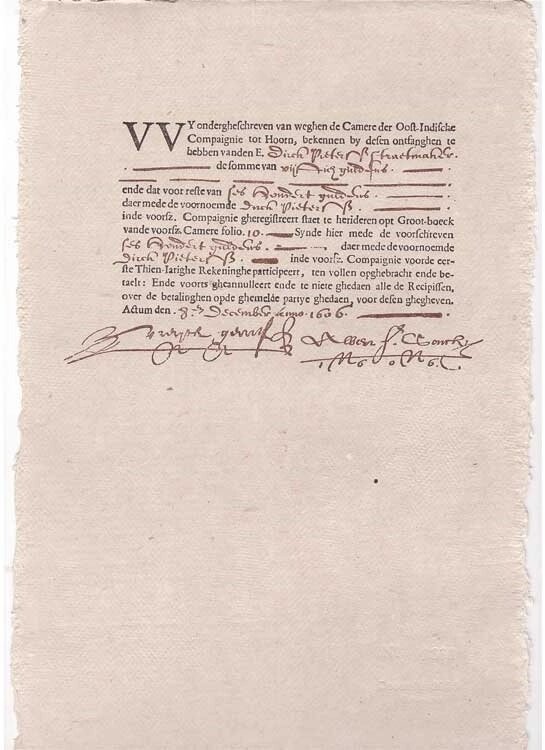 VVY ondergheschreven van weghen de Camere der Oost-Indische
Compaignie tot Hoorn, bekennen by desen ontfanghen te
hebben vanden E. Dirck Pieters straetmaker.
de somme van vijftich guldens.
ende dat voor reste van ses hondert guldens
daer mede de voornoemde Dirck Pieters
inde voorsz. Compaignie gheregistreert staet te herideren opt Groot-boeck
van de voorsz. Camere folio. 10. Synde hier mede de voorschreven
ses hondert guldens. daer mede de voornoemde
Dirck Pieters inde voorsz. Compaignie voorde eer-
ste Thien-Iarighe Rekeninghe participeert, ten vollen opghebracht ende be-
taelt: Ende voorts ghecannulleert ende te niete ghedaen alle de Recipissen,
over de betalinghen opde ghemelde partye ghedaen, voor desen ghegheven.
Actum den. December anno. 1606.